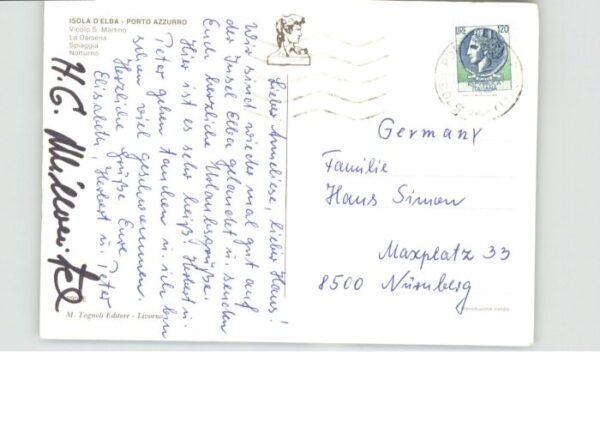 ISOLA D'ELBA - PORTO AZZURRO
Vicolo S. Martino
La Darsena
Spiaggia
Notturno
LIRE 120
Liebe Anneliese, lieber Hans!
Wir sind wieder mal gut auf
der Insel Elba gelandet u. senden
Euch herzliche Urlaubsgrüße.
Hier ist es sehr heiß. Herbert u.
Peter gehen tauchen u. ich bin
schon viel geschwommen.
Herzliche Grüße Eure
Elisabeth, Herbert u. Peter
H. G.
Germany
Familie
Hans Simon
Maxplatz 33
8500 Nürnberg
M. Tognoli Editore - Livorno
Riproduzione vietata